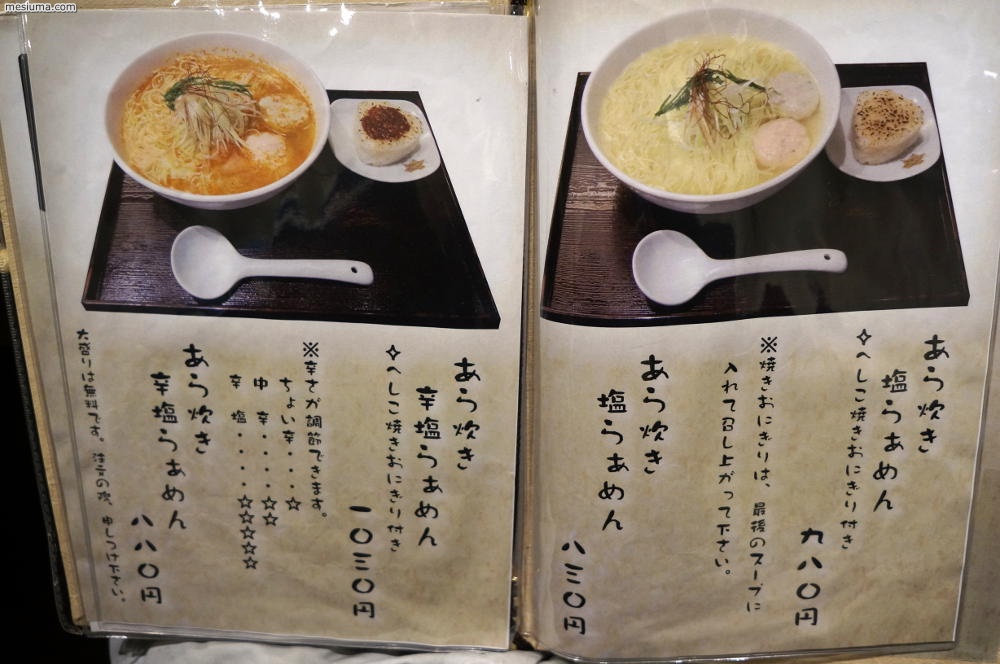 mesiuma.com
あら炊き
塩らぁめん
✧へしこ焼きおにぎり付き
九八〇円
※焼きおにぎりは、最後のスープに
入れて召し上がって下さい。
あら炊き
塩らぁめん
八三〇円
あら炊き
辛塩らぁめん
✧へしこ焼きおにぎり付き
一〇三〇円
※辛さが調節できます。
ちょい辛・・・☆
中 辛・・・・☆☆
辛 塩・・・・☆☆☆☆☆
あら炊き
辛塩らぁめん
八八〇円
大盛りは無料です。注文の際、申しつけ下さい。